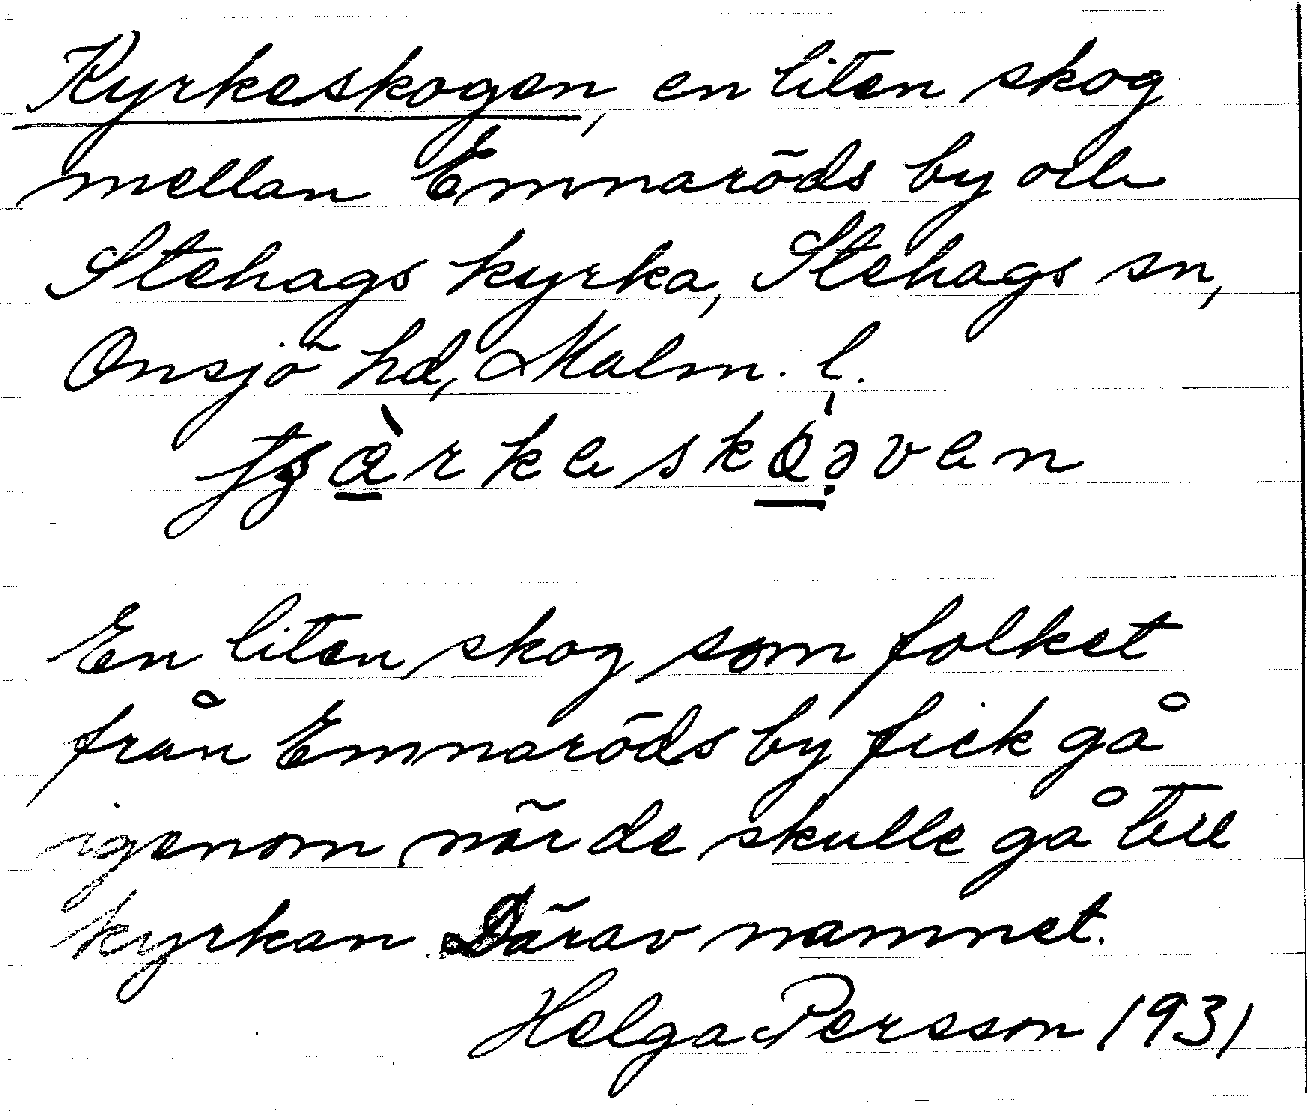 Kyrkeskogen, en liten skog
mellan Emnaröds by och
Stehags kyrka, Stehags sn,
Onsjö hd, Malm. l.
En liten skog som folket
från Emnaröds by fick gå
igenom när de skulle gå till
kyrkan. Därav namnet.
Helga Persson 1931